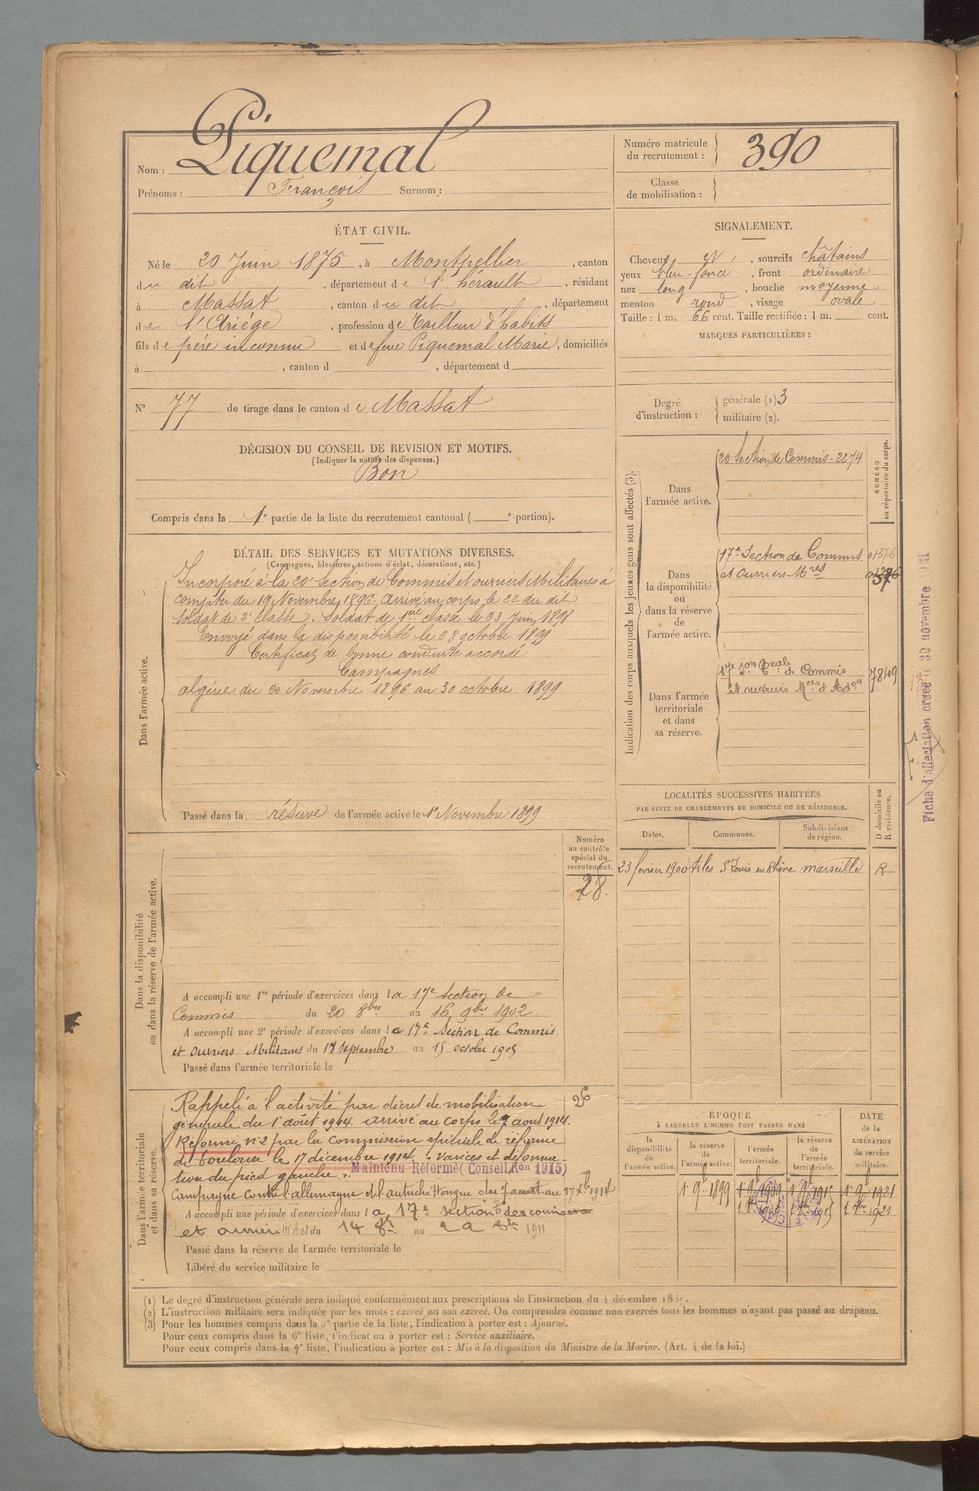 Nom : Piquemal
Prénoms : François Surnom :
Numéro matricule du recrutement : 390
Classe de mobilisation :
ÉTAT CIVIL.
Né le 20 Juin 1875, à Montpellier, canton
du dit, département de l'hérault, résidant
à Massat, canton du dit, département
de l'Ariége, profession de Tailleur d'habits
fils de père inconnu et de feue Piquemal Marie, domiciliés
à , canton d , département d
N° 77 de tirage dans le canton de Massat
DÉCISION DU CONSEIL DE REVISION ET MOTIFS.
(Indiquer la nature des dispenses.)
Bon
Compris dans la 1e partie de la liste du recrutement cantonal ( e portion).
SIGNALEMENT.
Cheveux N, sourcils châtains
yeux bleu foncé, front ordinaire
nez long, bouche moyenne
menton rond, visage ovale
Taille : 1 m. 66 cent. Taille rectifiée : 1 m. cent.
MARQUES PARTICULIÈRES :
Degré d'instruction : générale (1) 3
militaire (2).
DÉTAIL DES SERVICES ET MUTATIONS DIVERSES.
(Campagnes, blessures, actions d'éclat, décorations, etc.)
Dans l'armée active.
Incorporé à la 20e Section de Commis et ouvriers Militaires à
compter du 19 Novembre 1896. Arrivé au corps le 22 du dit
Soldat de 2e classe. Soldat de 1ère classe le 23 Juin 1898
Envoyé dans la disponibilité le 28 octobre 1899
Certificat de bonne conduite accordé
Campagnes
Algérie du 20 Novembre 1896 au 30 octobre 1899
Passé dans la réserve de l'armée active le 1er Novembre 1899
Indication des corps auxquels les jeunes gens sont affectés (3).
NUMÉRO au répertoire du corps.
Dans l'armée active.
20e Section de Commis - 2274
Dans la disponibilité ou dans la réserve de l'armée active.
17e Section de Commis 01576
et ouvriers Mres
Dans l'armée territoriale et dans sa réserve.
17e son Trale de Commis
et ouvriers Mres d'Adon 7849
Fiche d'affectation créée le 30 novembre
LOCALITÉS SUCCESSIVES HABITÉES
PAR SUITE DE CHANGEMENTS DE DOMICILE OU DE RÉSIDENCE.
Dates. Communes. Subdivisions de région. D domicile ou R résidence.
23 février 1900 Arles St Louis en Rhône Marseille R
Dans la disponibilité ou dans la réserve de l'armée active.
Numéro au contrôle spécial du recrutement.
28.
A accompli une 1re période d'exercices dans la 17e Section de
Commis du 20 8bre au 16 9bre 1902
A accompli une 2e période d'exercices dans la 17e Section de Commis
et ouvriers Militaires du 18 Septembre au 15 octobre 1905
Passé dans l'armée territoriale le
Dans l'armée territoriale et dans sa réserve.
Rappelé à l'activité par décret de mobilisation
générale du 1er août 1914. arrivé au corps le 7 août 1914.
Réformé n° 2 par la Commission spéciale de réforme
de Toulouse le 17 décembre 1914. : varices et déforma-
tion du pied gauche.
Maintenu Réformé (Conseil Ron 1915)
Campagne contre l'allemagne et l'autriche Hongrie du 7 août au 17 Xb 1914
A accompli une période d'exercices dans la 17e section de commis
et ouvriers du 14 au 22 1911
Passé dans la réserve de l'armée territoriale le
Libéré du service militaire le
ÉPOQUE
À LAQUELLE L'HOMME DOIT PASSER DANS
la disponibilité de l'armée active.
la réserve de l'armée active.
l'armée territoriale.
la réserve de l'armée territoriale.
DATE de la LIBÉRATION du service militaire.
1er 9bre 1899 1er 9bre 1909 1er 9bre 1915 1er 9bre 1921
(1) Le degré d'instruction générale sera indiqué conformément aux prescriptions de l'instruction du 4 décembre
(2) L'instruction militaire sera indiquée par les mots : exercé ou non exercé. On comprendra comme non exercés tous les hommes n'ayant pas passé au drapeau.
(3) Pour les hommes compris dans la 5e partie de la liste, l'indication à porter est : Ajourné.
Pour ceux compris dans la 6e liste, l'indication à porter est : Service auxiliaire.
Pour ceux compris dans la 7e liste, l'indication à porter est : Mis à la disposition du Ministre de la Marine. (Art. 4 de la loi.)